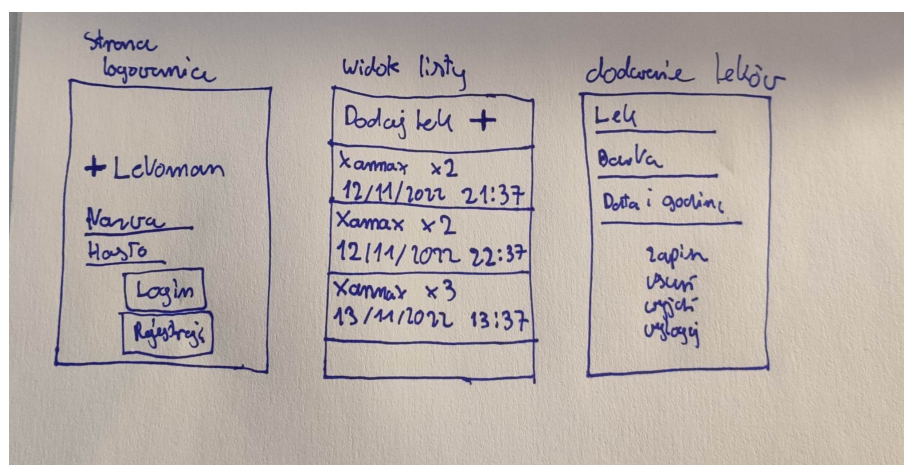 Strona
logowanica
+ Lekoman
Nazwa
Hasło
Login
Rejestracja
widok listy
Dodaj lek +
Xanmax x2
12/11/2022 21:37
Xanax x2
12/11/2022 22:37
Xanmax x3
13/11/2022 13:37
dodawanie leków
Lek
Dawka
Data i godzina
zapisz
usuń
wyjdź
wyloguj